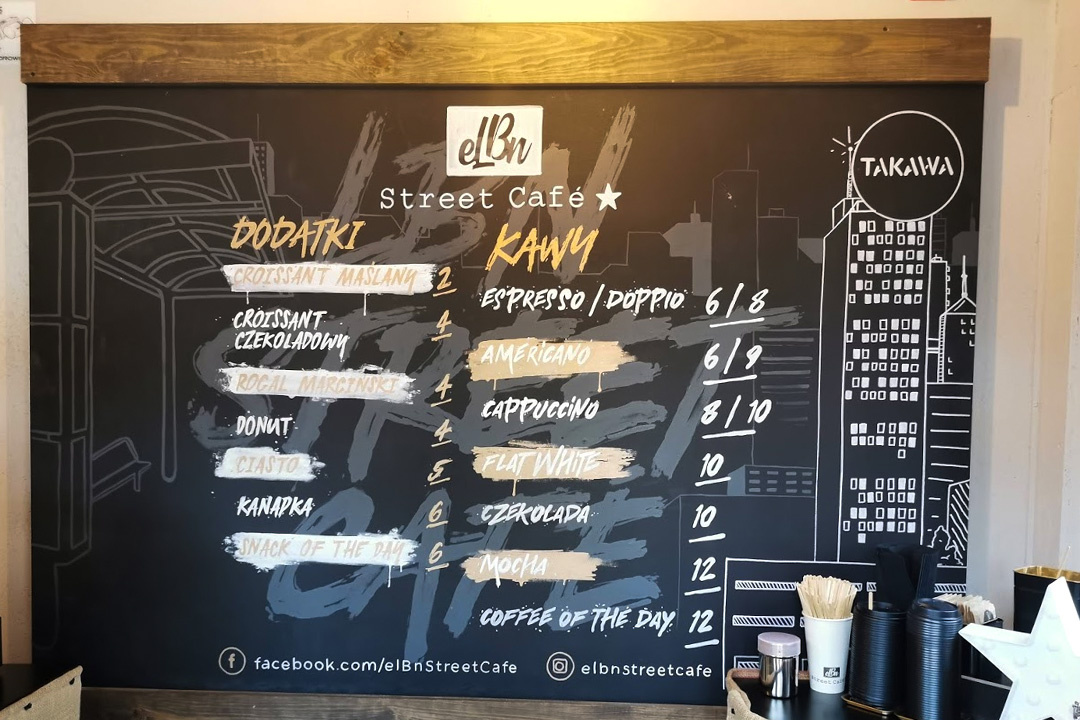 eLBn
Street Café
TAKAWA
DODATKI
CROISSANT MAŚLANY 2
CROISSANT
CZEKOLADOWY 4
ROGAL MARCIŃSKI 4
DONUT 4
CIASTO 5
KANAPKA 6
SNACK OF THE DAY 6
KAWY
ESPRESSO / DOPPIO 6 / 8
AMERICANO 6 / 9
CAPPUCCINO 8 / 10
FLAT WHITE 10
CZEKOLADA 10
MOCHA 12
COFFEE OF THE DAY 12
facebook.com/elBnStreetCafe
elbnstreetcafe
LBN
STREET
CAFE
eLBn
Street Café